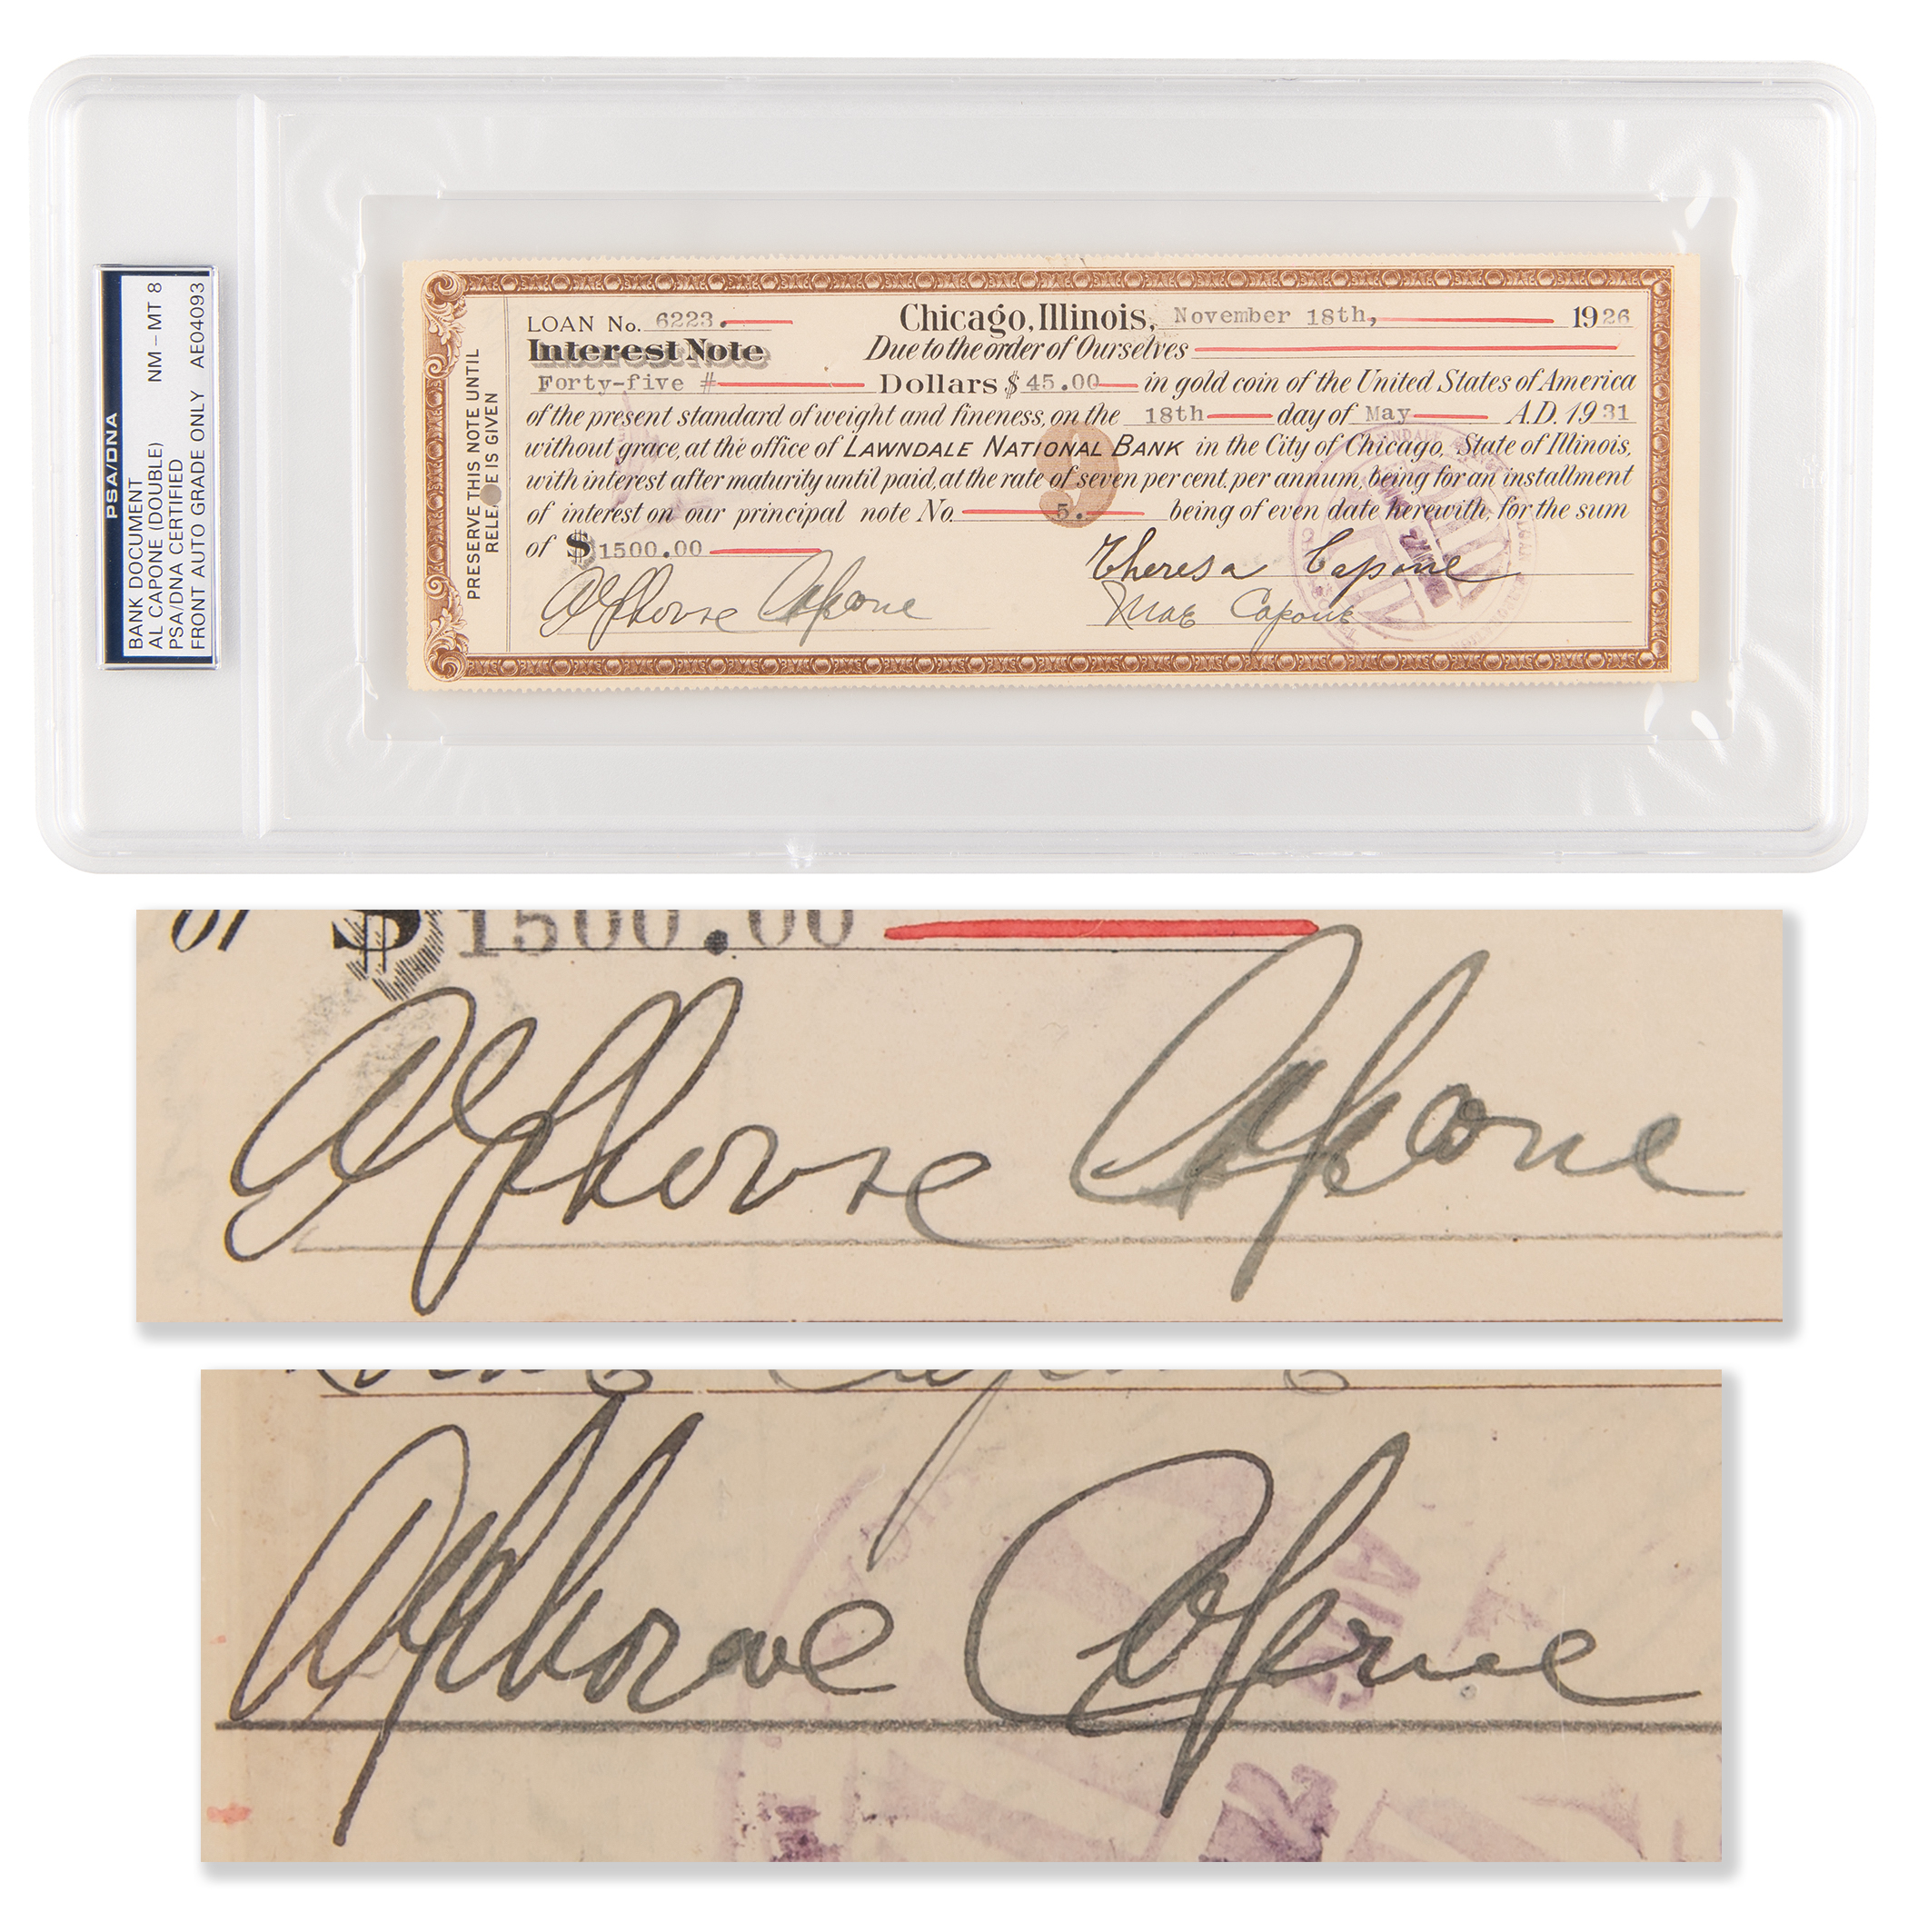 PSA/DNA
BANK DOCUMENT NM - MT 8
AL CAPONE (DOUBLE)
PSA/DNA CERTIFIED
FRONT AUTO GRADE ONLY AE04093
PRESERVE THIS NOTE UNTIL
RELEASE IS GIVEN
LOAN No. 6223. Chicago, Illinois, November 18th, 1926
Interest Note Due to the order of Ourselves
Forty-five # Dollars $ 45.00 in gold coin of the United States of America
of the present standard of weight and fineness, on the 18th day of May A.D. 1931
without grace, at the office of LAWNDALE NATIONAL BANK in the City of Chicago, State of Illinois,
with interest after maturity until paid, at the rate of seven per cent. per annum, being for an installment
of interest on our principal note No. 5. being of even date herewith, for the sum
of $ 1500.00
9
Theresa Capone
Alphonse Capone Mae Capone
of $ 1500.00
Alphonse Capone
Alphonse Capone